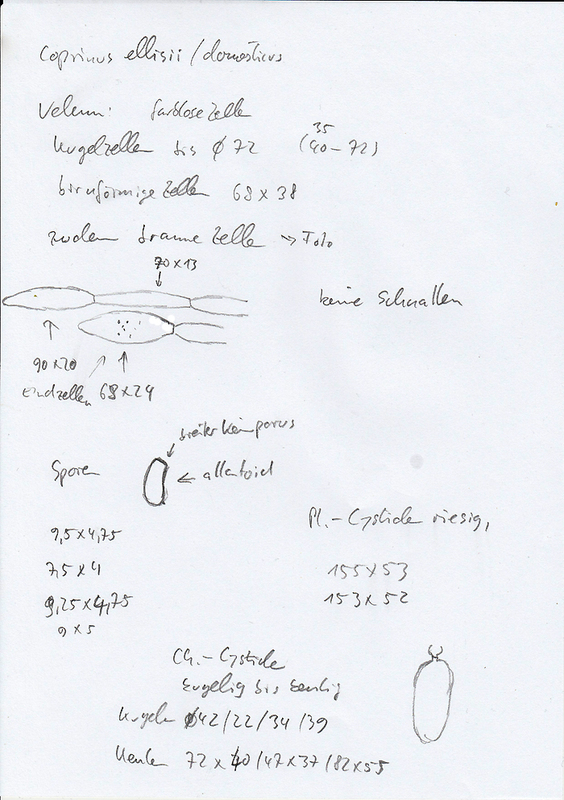 Coprinus ellisii / domesticus
Velum: farblose Zellen
Kugelzellen bis Ø 72 (40 – 72)
35
birnförmige Zellen 68 x 38
zudem braune Zellen -> Foto
70 x 13
keine Schnallen
90 x 20
Endzellen 68 x 24
breiter Keimporus
Sporen
← allantoid
Pl.-Cystide riesig,
9,5 x 4,75
7,5 x 4
155 x 53
9,25 x 4,75
153 x 52
9 x 5
Ch.-Cystide
kugelig bis keulig
Kugeln Ø 42 / 22 / 34 / 39
Keulen 72 x 40 / 47 x 37 / 82 x 55